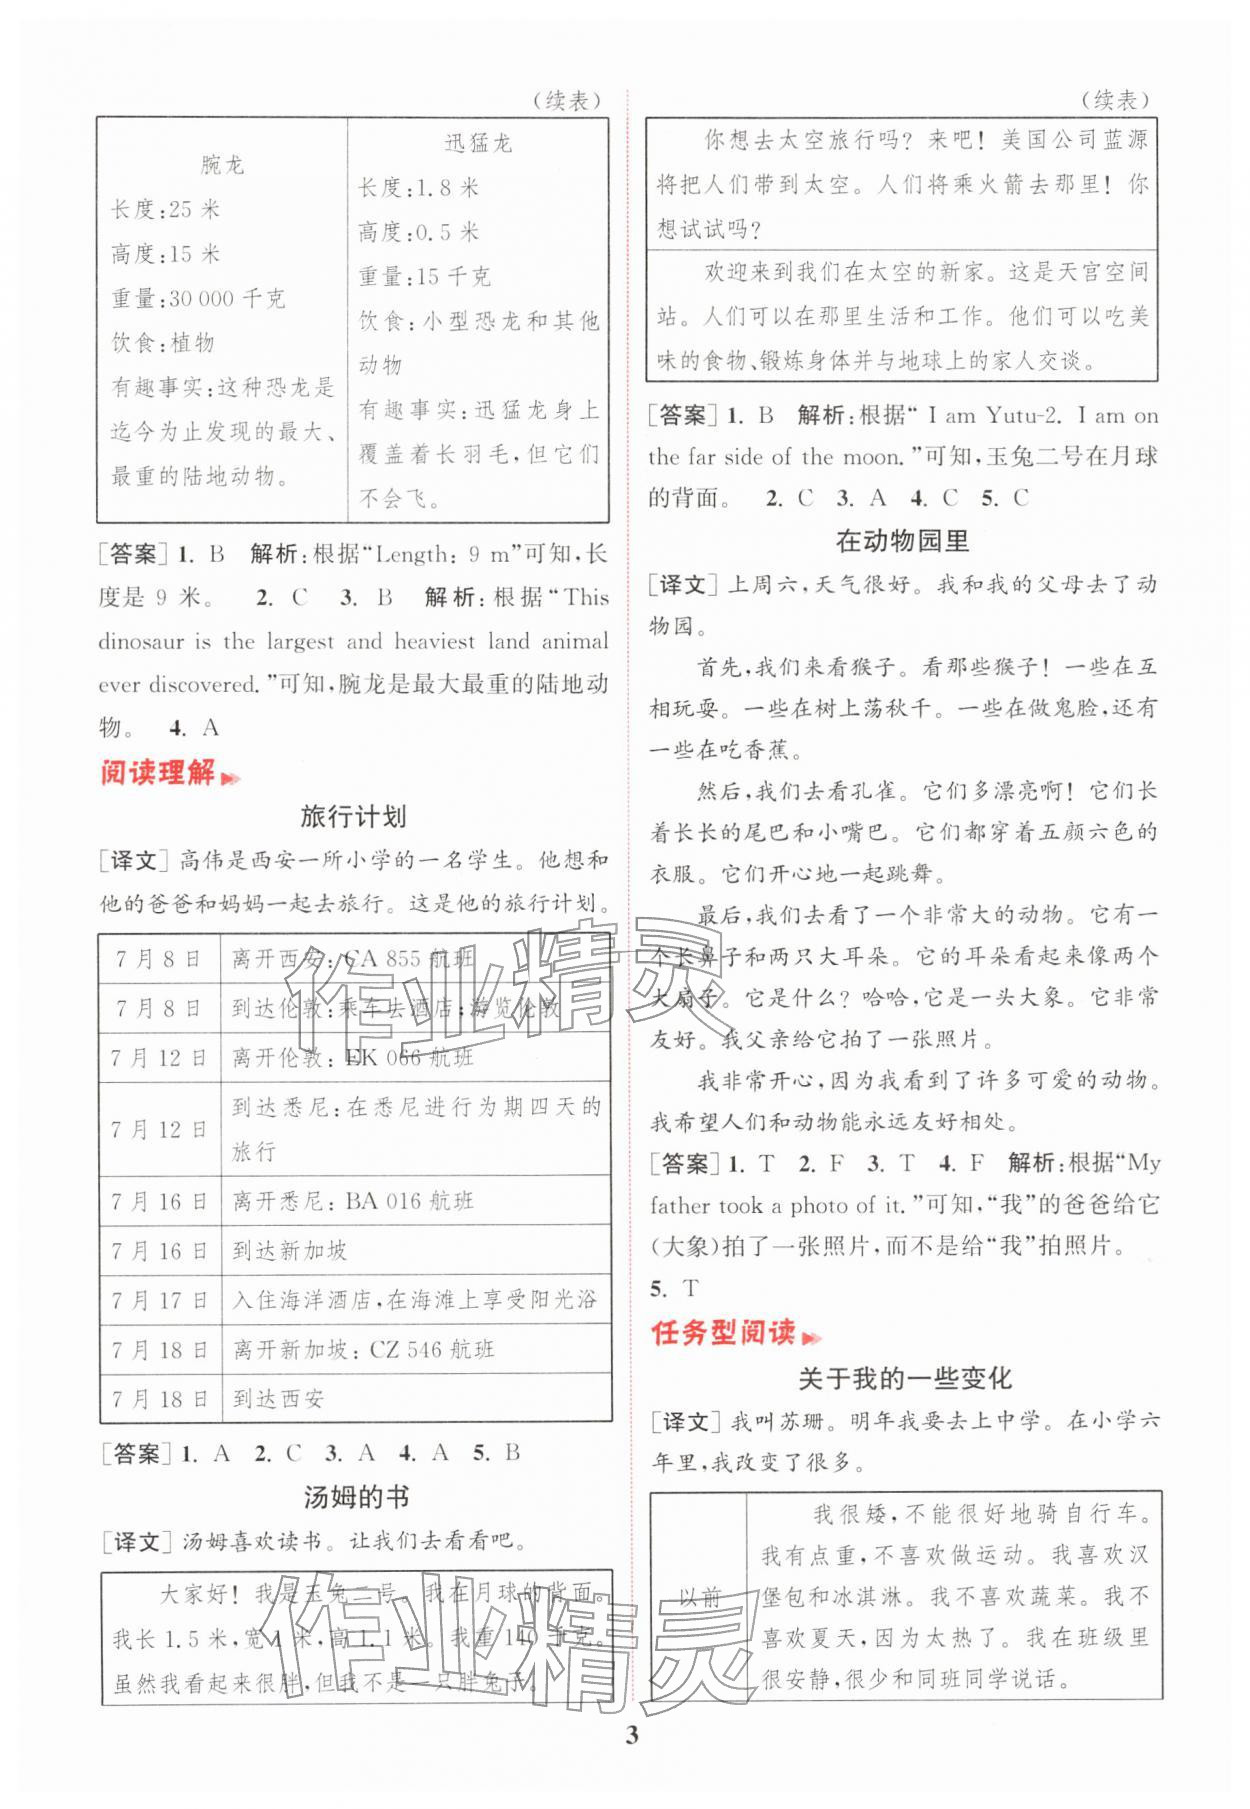 (续表)
腕龙
长度:25 米
高度:15 米
重量:30 000 千克
饮食:植物
有趣事实:这种恐龙是
迄今为止发现的最大、
最重的陆地动物。
迅猛龙
长度:1.8 米
高度:0.5 米
重量:15 千克
饮食:小型恐龙和其他
动物
有趣事实:迅猛龙身上
覆盖着长羽毛,但它们
不会飞。
[答案]1. B 解析:根据“Length: 9 m”可知,长
度是 9 米。 2. C 3. B 解析:根据“This
dinosaur is the largest and heaviest land animal
ever discovered.”可知,腕龙是最大最重的陆地动
物。 4. A
阅读理解
旅行计划
[译文]高伟是西安一所小学的一名学生。他想和
他的爸爸和妈妈一起去旅行。这是他的旅行计划。
7 月 8 日 离开西安:CA 855 航班
7 月 8 日 到达伦敦:乘车去酒店;游览伦敦
7 月 12 日 离开伦敦:EK 066 航班
7 月 12 日 到达悉尼:在悉尼进行为期四天的
旅行
7 月 16 日 离开悉尼:BA 016 航班
7 月 16 日 到达新加坡
7 月 17 日 入住海洋酒店,在海滩上享受阳光浴
7 月 18 日 离开新加坡:CZ 546 航班
7 月 18 日 到达西安
[答案]1. A 2. C 3. A 4. A 5. B
汤姆的书
[译文]汤姆喜欢读书。让我们去看看吧。
大家好!我是玉兔二号。我在月球的背面。
我长 1.5 米,宽 1 米,高 1.1 米。我重 140 千克。
虽然我看起来很胖,但我不是一只胖兔子。
(续表)
你想去太空旅行吗?来吧!美国公司蓝源
将把人们带到太空。人们将乘火箭去那里!你
想试试吗?
欢迎来到我们在太空的新家。这是天宫空间
站。人们可以在那里生活和工作。他们可以吃美
味的食物、锻炼身体并与地球上的家人交谈。
[答案]1. B 解析:根据“I am Yutu-2. I am on
the far side of the moon.”可知,玉兔二号在月球
的背面。 2. C 3. A 4. C 5. C
在动物园里
[译文]上周六,天气很好。我和我的父母去了动
物园。
首先,我们来看猴子。看那些猴子!一些在互
相玩耍。一些在树上荡秋千。一些在做鬼脸,还有
一些在吃香蕉。
然后,我们去看孔雀。它们多漂亮啊!它们长
着长长的尾巴和小嘴巴。它们都穿着五颜六色的
衣服。它们开心地一起跳舞。
最后,我们去看了一个非常大的动物。它有一
个长鼻子和两只大耳朵。它的耳朵看起来像两个
大扇子。它是什么?哈哈,它是一头大象。它非常
友好。我父亲给它拍了一张照片。
我非常开心,因为我看到了许多可爱的动物。
我希望人们和动物能永远友好相处。
[答案]1. T 2. F 3. T 4. F 解析:根据“My
father took a photo of it.”可知,“我”的爸爸给它
(大象)拍了一张照片,而不是给“我”拍照片。
5. T
任务型阅读
关于我的一些变化
[译文]我叫苏珊。明年我要去上中学。在小学六
年里,我改变了很多。
以前
我很矮,不能很好地骑自行车。
我有点重,不喜欢做运动。我喜欢汉
堡包和冰淇淋。我不喜欢蔬菜。我不
喜欢夏天,因为太热了。我在班级里
很安静,很少和同班同学说话。
3
作业精灵
作业精灵